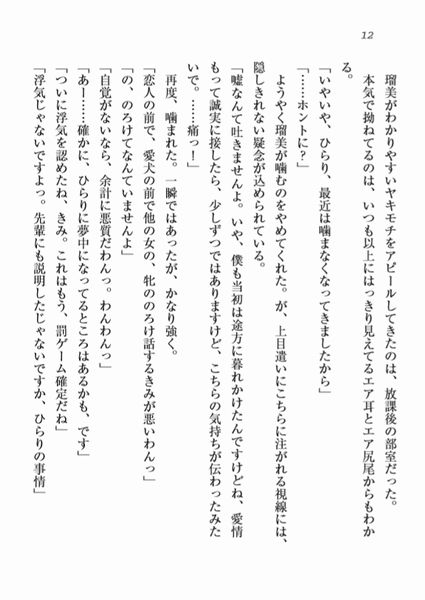 12
　瑠美がわかりやすいヤキモチをアピールしてきたのは、放課後の部室だった。
　本気で拗ねてるのは、いつも以上にはっきり見えてるエア耳とエア尻尾からもわか
る。
「いやいや、ひらり、最近は噛まなくなってきましたから」
「……ホントに？」
　ようやく瑠美が噛むのをやめてくれた。が、上目遣いにこちらに注がれる視線には、
隠しきれない疑念が込められている。
「嘘なんて吐きませんよ。いや、僕も当初は途方に暮れかけたんですけどね、愛情
もって誠実に接したら、少しずつではありますけど、こちらの気持ちが伝わったみた
いで。……痛っ！」
　再度、噛まれた。一瞬ではあったが、かなり強く。
「恋人の前で、愛犬の前で他の女の、牝ののろけ話するきみが悪いわんっ」
「の、のろけてなんていませんよ」
「自覚がないなら、余計に悪質だわんっ。わんわんっ」
「あ――……確かに、ひらりに夢中になってるところはあるかも、です」
「ついに浮気を認めたね、きみ。これはもう、罰ゲーム確定だね」
「浮気じゃないですよっ。先輩にも説明したじゃないですか、ひらりの事情」